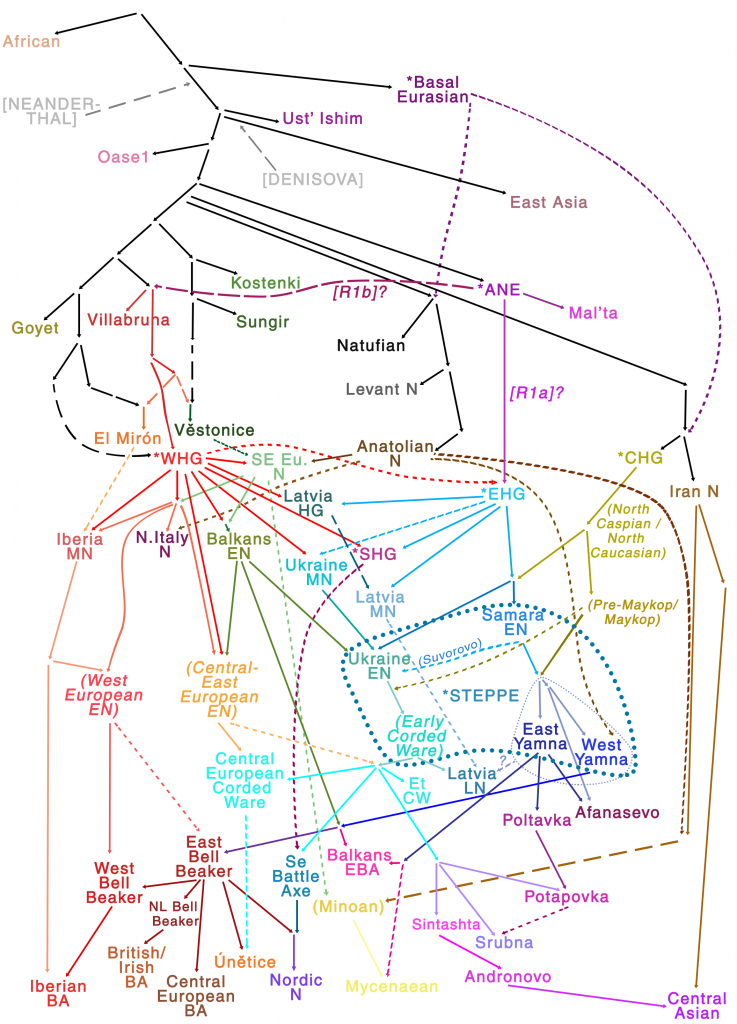 African
*Basal
Eurasian
[NEANDER-
THAL]
Ust' Ishim
Oase1
[DENISOVA]
East Asia
Kostenki
[R1b]?
*ANE
Goyet
Villabruna
Sungir
Mal'ta
Natufian
Levant N
[R1a]?
El Mirón
Věstonice
*WHG
SE Eu.
N
Anatolian
N
*CHG
Iran N
Latvia
HG
*EHG
(North
Caspian /
North
Caucasian)
Iberia
MN
N.Italy
N
Balkans
EN
Ukraine
MN
*SHG
Latvia
MN
Samara
EN
(Pre-Maykop/
Maykop)
(West
European
EN)
(Central-
East
European
EN)
Ukraine
EN
(Suvorovo)
*STEPPE
(Early
Corded
Ware)
East
Yamna
West
Yamna
Central
European
Corded
Ware
?
Latvia
LN
Et
CW
Poltavka
Afanasevo
East
Bell
Beaker
West
Bell
Beaker
Se
Battle
Axe
Balkans
EBA
NL Bell
Beaker
(Minoan)
Potapovka
Sintashta
Srubna
British/
Irish
BA
Únětice
Iberian
BA
Central
European
BA
Nordic
N
Mycenaean
Andronovo
Central
Asian